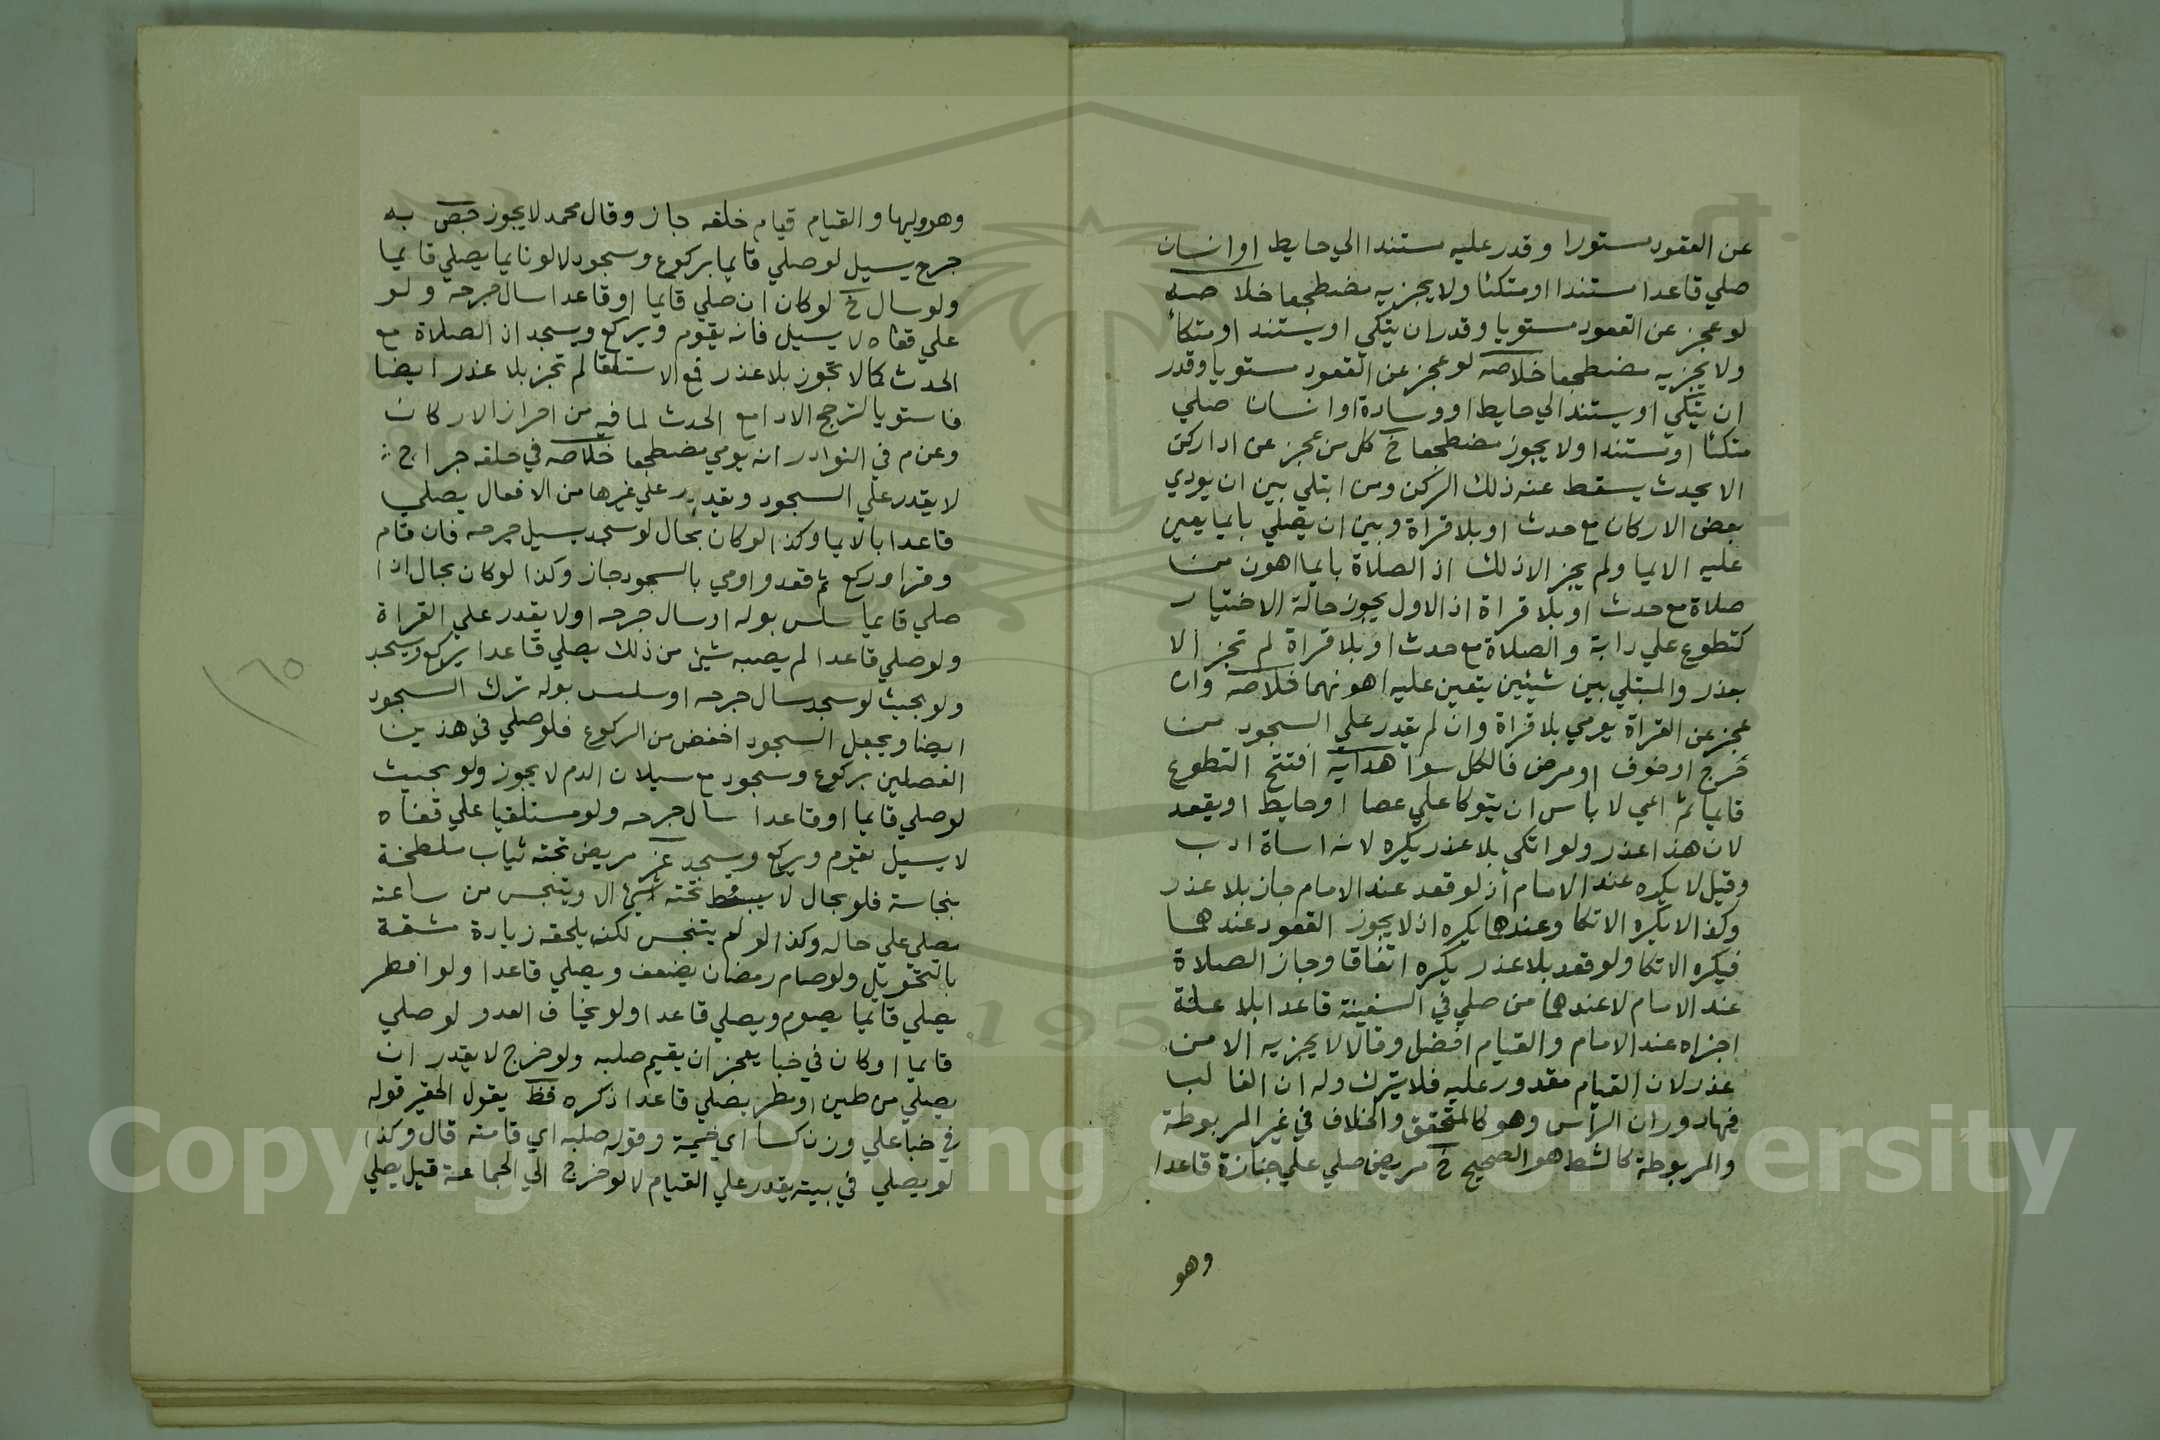 عن القعود مستورا وقدر عليه مستندا الي حايط او انسان
صلي قاعدا مستندا او متكئا ولا يجزيه مضطجعا خلاصه
لو عجز عن القعود مستويا وقدر ان يتكي او يستند او متكأ
ولا يجزيه مضطجعا خلاصه لو عجز عن القعود مستويا وقدر
ان يتكي او يستند الي حايط او وسادة او انسان صلي
متكئا او مستندا ولا يجوز مضطجعا خ كل من عجز عن ادا ركن
الا بحدث يسقط عنه ذلك الركن ومن ابتلي بين ان يودي
بعض الاركان مع حدث او بلا قراة وبين ان يصلي بايما يعين
عليه الايما ولم يجز الا ذلك اذ الصلاة بايما اهون من
صلاة مع حدث او بلا قراة اذ الاول يجوز حالة الاختيار
كتطوع علي دابة والصلاة مع حدث او بلا قراة لم تجز الا
بعذر والمبتلي بين شيئين يتعين عليه اهونهما خلاصه وان
عجز عن القراة يومي بلا قراة وان لم يقدر علي السجود من
خرج او خوف او مرض فالكل سوا هدايه افتتح التطوع
قايما ثم اعي لا باس ان يتوكا علي عصا او حايط او يقعد
لان هذا عذر ولو اتكي بلا عذر يكره لانه اساة ادب
وقيل لا يكره عند الامام اذ لو قعد عند الامام جاز بلا عذر
وكذا لا يكره الاتكا وعندهما يكره اذ لا يجوز القعود عندهما
فيكره الاتكا ولو قعد بلا عذر يكره اتفاقا وجاز الصلاة
عند الامام لا عندهما من صلي في السفينة قاعدا بلا علة
اجزاه عند الامام والقيام افضل وقالا لا يجزيه الا من
عذر لان القيام مقدور عليه فلا يترك وله ان الغالب
فيها دوران الراس وهو كالمتحقق والخلاف في غير المربوطة
والمربوطة كالشط هو الصحيح خ مريض صلي علي جنازة قاعدا
وهو
وهو وليها والقيام قيام خلفه جاز وقال محمد لا يجوز جص به
جرح يسيل لو صلي قايما بركوع وسجود لا لو نايما يصلي قايما
ولو سال خ لو كان ان صلي قايما او قاعدا سال جرحه ولو
علي قفاه لا يسيل فانه يقوم ويركع ويسجد اذ الصلاة مع
الحدث كما لا تجوز بلا عذر فمع الاستلقا لم تجز بلا عذر ايضا
فاستويا لترجح الادا مع الحدث لما فيه من احراز الاركان
وعن م في النوادر انه يومي مضطجعا خلاصه في حلقه جراح
لا يقدر علي السجود ويقدر علي غيرها من الافعال يصلي
قاعدا بالايما وكذا لو كان بحال لو سجد يسيل جرحه فان قام
وقرا وركع ثم قعد واومي بالسجود جاز وكذا لو كان بحال اذا
صلي قايما سلس بوله او سال جرحه او لا يقدر علي القراة
ولو صلي قاعدا لم يصبه شيئ من ذلك يصلي قاعدا يركع ويسجد
ولو بحيث لو سجد سال جرحه او سلس بوله ترك السجود
ايضا ويجعل السجود اخفض من الركوع فلو صلي في هذين
الفصلين بركوع وسجود مع سيلان الدم لا يجوز ولو بحيث
لو صلي قايما او قاعدا سال جرحه ولو مستلقيا علي قفاه
لا يسيل يقوم ويركع ويسجد عز مريض تحته ثياب ملطخة
بنجاسة فلو بحال لا يبسط تحته شيئ الا ويتنجس من ساعته
يصلي علي حاله وكذا لو لم يتنجس لكنه يلحقه زيادة مشقة
بالتحويل ولو صام رمضان يضعف ويصلي قاعدا ولو افطر
يصلي قايما يصوم ويصلي قاعدا ولو يخاف العدو لو صلي
قايما او كان في خبا يعجز ان يقيم صلبه ولو خرج لا يقدر ان
يصلي من طين او مطر يصلي قاعدا ذكره فظ يقول الحقير قوله
في خبا علي وزن كسا اي خيمة وقوله صلبه اي قامته قال وكذا
لو يصلي في بيته يقدر علي القيام لا لو خرج الي الجماعة قيل يصلي
٦٥
1957
Copyright © King Saud University